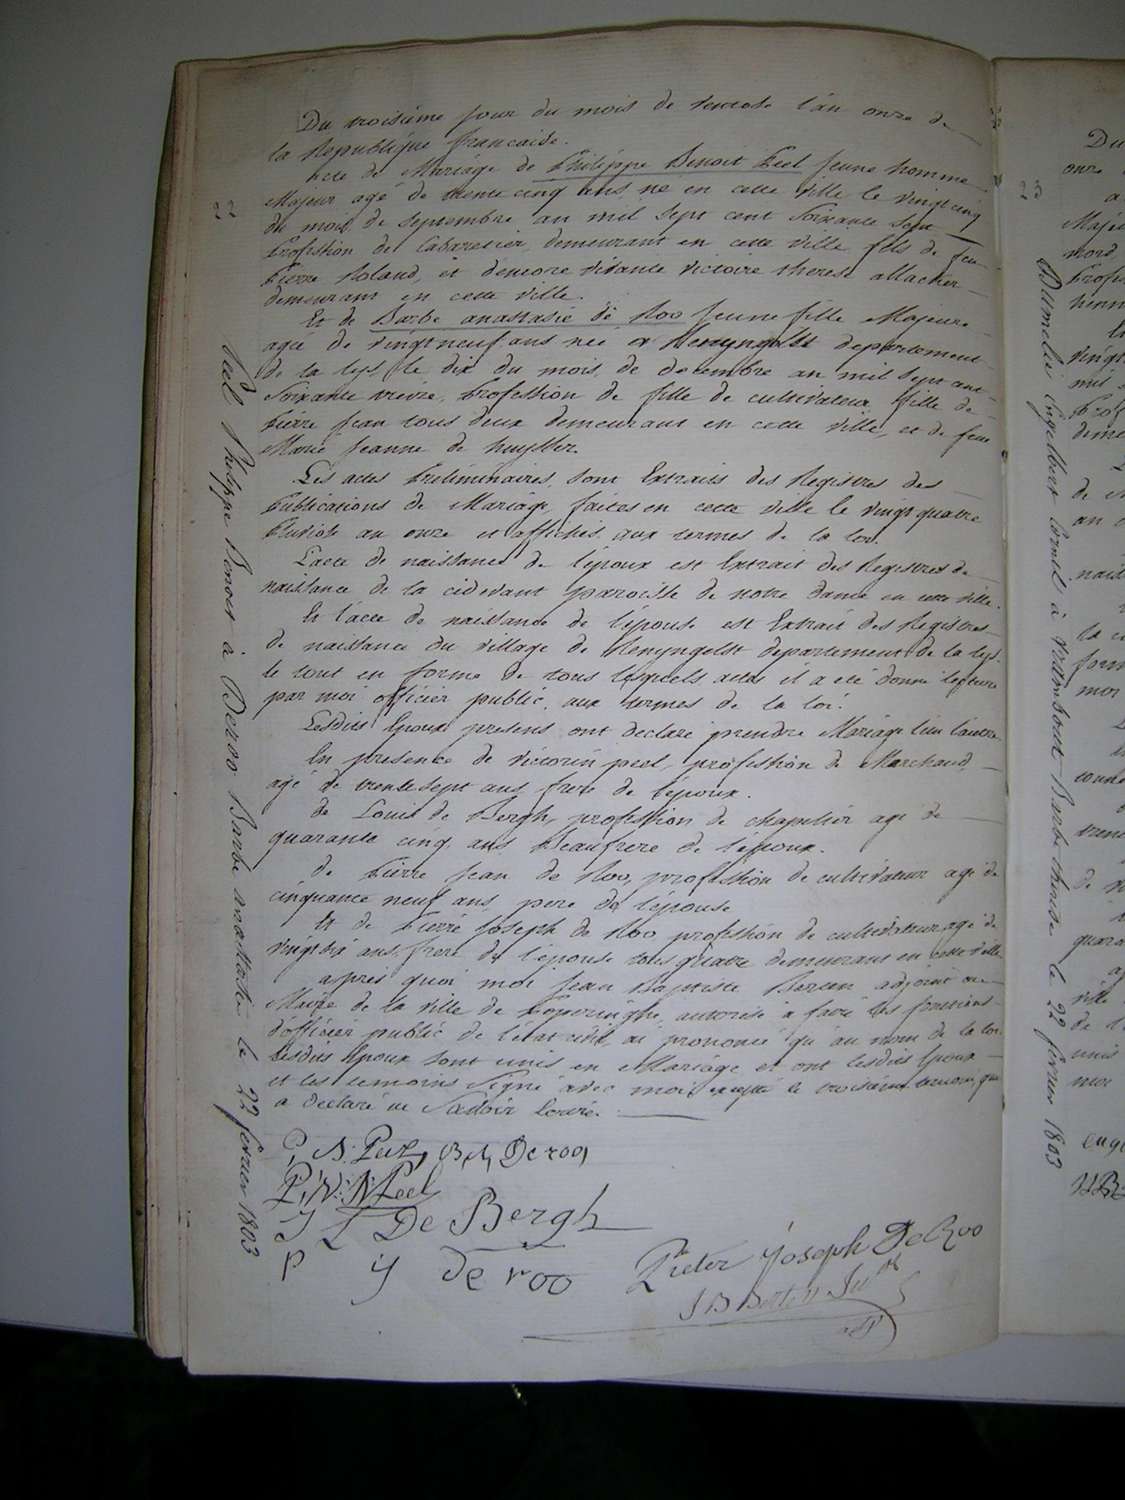 Du troisième jour du mois de ventose l'an onze de
la Republique francaise.
Acte de Mariage de Philippe Benoit Peel jeune homme
Majeur agé de trente cinq ans né en cette ville le vingt cinq
du mois de septembre an mil sept cent Soixante sept
Profession de Cabaretier, demeurant en cette ville fils de feu
Pierre Roland, et d'encore vivante victoire therese allacker
demeurant en cette ville.
Et de Barbe anastasie de Roo jeune fille Majeure
agée de vingt neuf ans née a Renyngelst departement
de la lys, le dix du mois de decembre an mil sept cent
Soixante treize, Profession de fille de cultivateur fille de
Pierre jean tous deux demeurant en cette ville, et de feue
Marie Jeanne de huysser.
Les actes Preliminaires sont Extraits des Registres des
Publications de Mariage faites en cette ville le vingt quatre
Pluviose an onze et affichés aux termes de la loi.
L'acte de naissance de l'époux est Extrait des Registres de
naissance de la cidevant paroisse de notre dame en cette ville.
Et l'acte de naissance de l'épouse est Extrait des Registres
de naissance du village de Renyngelst departement de la lys.
le tout en forme de tous lesquels actes il a été donné lecture
par moi officier public, aux termes de la loi.
Lesdits Epoux presens ont declaré prendre Mariage l'un l'autre
En presence de victorin peel, profession de Marchand,
agé de trente sept ans frere de l'époux.
de Louis de Bergh, profession de chapelier agé de
quarante cinq ans Beaufrere de l'époux.
de Pierre Jean de Roo, profession de cultivateur agé de
cinquante neuf ans pere de l'épouse
Et de Pierre Joseph de Roo profession de cultivateur agé de
vingt six ans frere de l'épouse tous quatre demeurant en cette ville
après quoi moi Jean Baptiste Berten adjoint au
Maire de la ville de Poperinghe, autorisé à faire les fonctions
d'officier public de l'état civil, ai prononcé qu'au nom de la loi
lesdits Epoux sont unis en Mariage et ont lesdits Epoux
et les temoins Signé avec moi, excepté le troisième temoin qui
a declaré ne Savoir Ecrire.
P, B: Peel, B, A, De roo,
P, V: N: Peel
J L De Bergh
P J de roo Pieter Joseph De Roo
J B Berten
adj
22
Peel Philippe Benoit à Deroo Barbe anastasie le 22 fevrier 1803
Dumelie Engelbert Cornil à Barbe therese le 22 fevrier 1803